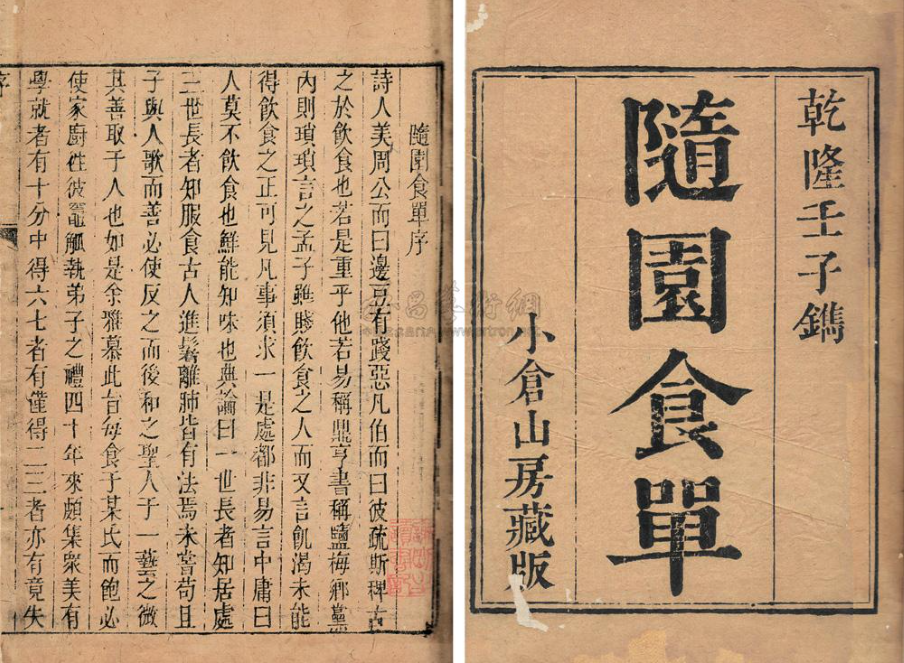 乾隆壬子鐫
隨園食單
小倉山房藏版
隨園食單序
詩人美周公而曰邊豆有踐惡凡伯而曰彼疏斯稗古
之於飲食也若是重乎他若易稱鼎亨書稱鹽梅鄉黨
內則瑣瑣言之孟子雖賤飲食之人而又言飢渴未能
得飲食之正可見凡事須求一是處都非易言中庸曰
人莫不飲食也鮮能知味也典論曰一世長者知居處
三世長者知服食古人進鬐離肺皆有法焉未嘗苟且
子與人歌而善必使反之而後和之聖人于一藝之微
其善取于人也如是余雅慕此旨每食于某氏而飽必
使家廚往彼竈觚執弟子之禮四十年來頗集衆美有
學就者有十分中得六七者有僅得二三者亦有竟失
序